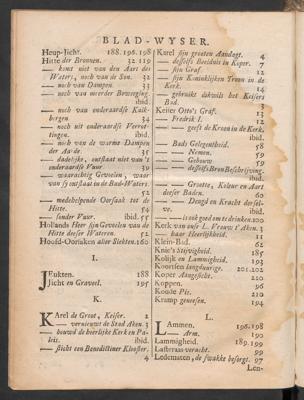 BLAD-WYSER.
Heup-Jicht. 188. 196. 198
Hitte der Bronnen. 32 119
— komt niet van den Aart des
Waters, noch van de Son. 32
— noch van Dampen. 33
— noch van meerder Beweeging.
ibid.
— noch van onderaardse Kalk-
bergen. 34
— noch uit onderaardse Verrot-
tingen. ibid.
— noch van de warme Dampen
der Aarde. 35
— dadelijke, ontstaat niet van 't
onderaardse Vuur 39
— waarachtig Gewelen, waar
van sy ontstaat in de Bad-Waters.
52
— medehelpende Oorsaak tot de
Hitte. 54
— sonder Vuur. ibid. 55
Hollands Heer sijn Gevoelen van de
Hitte deeser Wateren. 52
Hoofd-Oorsaken aller Siekten. 160
I.
Jeukten. 188
Jicht en Graveel. 195
K.
Karel de Groot, Keiser. 2
— vernieuwt de Stad Aken. 3
— bouwd de heerlijke Kerk en Pa-
leis. ibid.
— sticht een Benedictiner Klooster.
4
Karel sijn grooten Aandagt. 4
— desselfs Beeldnis in Koper. 7
— sijn Graf. 12
— sijn Koninklijken Troon in de
Kerk. 14
— gebruikt dikwils het Keisers
Bad.
Keiser Otto's Graf. 13
— Fredrik I. 12
— geeft de Kroon in de Kerk.
ibid.
— Bads Gelegentheid. 58
— Nemen. 59
— Gebouw. 59
— desselfs Bron Beschrijving.
ibid.
— Groote, Koleur en Aart
deser Baden. 60
— Deugd en Kracht dersel-
ve. ibid.
— is ook goed om te drinken. 100
Kerk van onse L. Vrouw t'Aken.
haar Heerlijkheid. 11
Klein-Bad. 62
Knie's Stijvigheid. 185
Kolijk en Lammigheid. 193
Koortsen langduurige. 201. 202
Koper Aangesicht. 210
Koppen. 96
Koude Pis. 210
Kramp genesen. 194
L.
Lammen. 196. 198
— Arm. 190
Lammigheid. 189. 199
Lastbrass verucht. 99
Ledematen, de swakke besorgt. 97
Len-